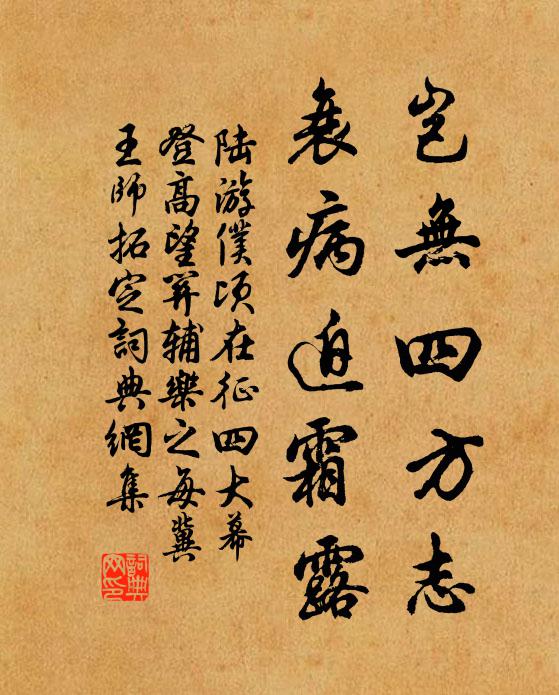 豈無四方志
衰病迫霜露
陸游僕頃在征四大幕
登高望関輔樂之每冀
王師拓定詞典網集
詞典网印